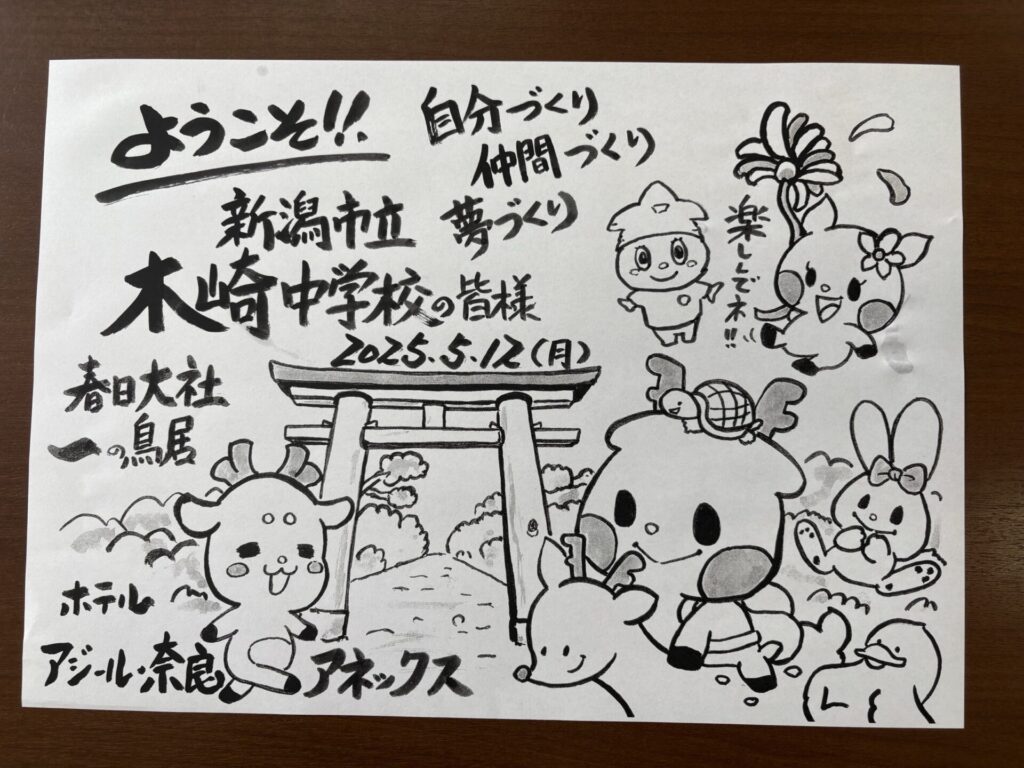 ようこそ!!
自分づくり
仲間づくり
夢づくり
新潟市立
木崎中学校の皆様
2025.5.12(月)
楽しんでネ!!
春日大社
一の鳥居
ホテル
アジール・奈良アネックス